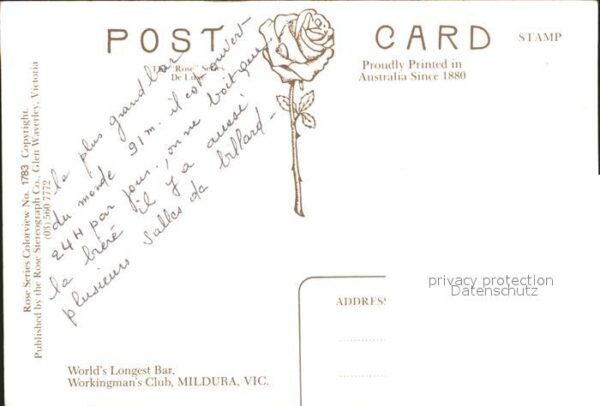 POST CARD
STAMP
The "Rose" Series
De Luxe
Proudly Printed in
Australia Since 1880
le plus grand bar
du monde 91m. il est ouvert
24H par jour, on ne boit que
la bière il y a aussi
plusieurs salles de billard-
Rose Series Colorview No. 1783 Copyright.
Published by the Rose Stereograph Co., Glen Waverley, Victoria
(03) 560 7772
privacy protection
Datenschutz
ADDRESS
World's Longest Bar,
Workingman's Club, MILDURA, VIC.